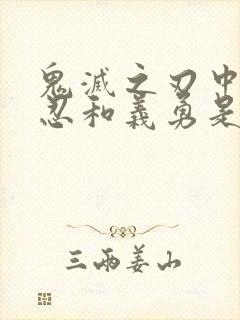 鬼滅之刃中
忍和義勇是
三兩姜山